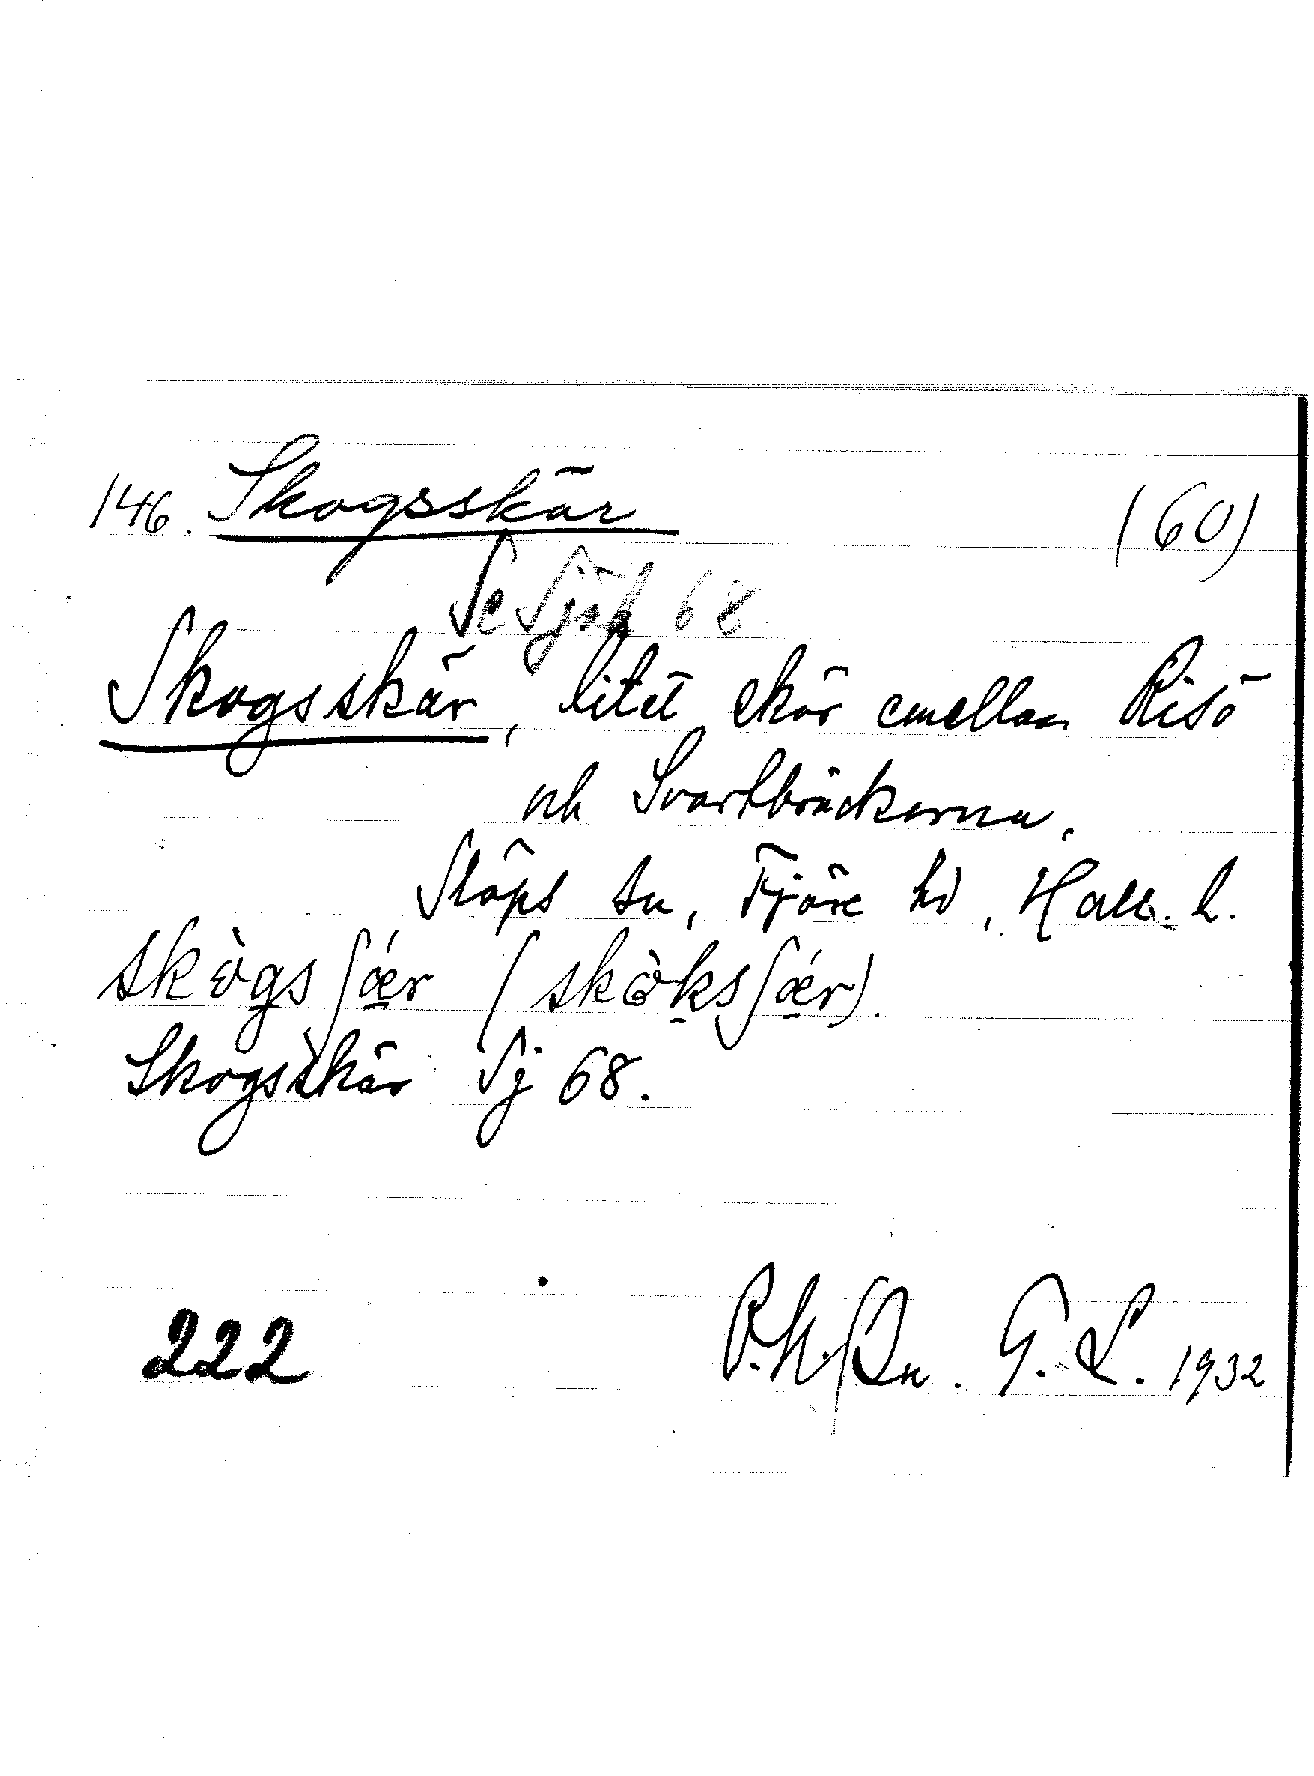 146. Skogsskär (60)
Se Sjök 68
Skogsskär, litet skär emellan Risö
och Svartbräckorna,
Släps sn, Fjäre hd, Hall. l.
skògsʃǽr (skòksʃǽr).
Skogsskär Sj 68.
222 G. L. 1932